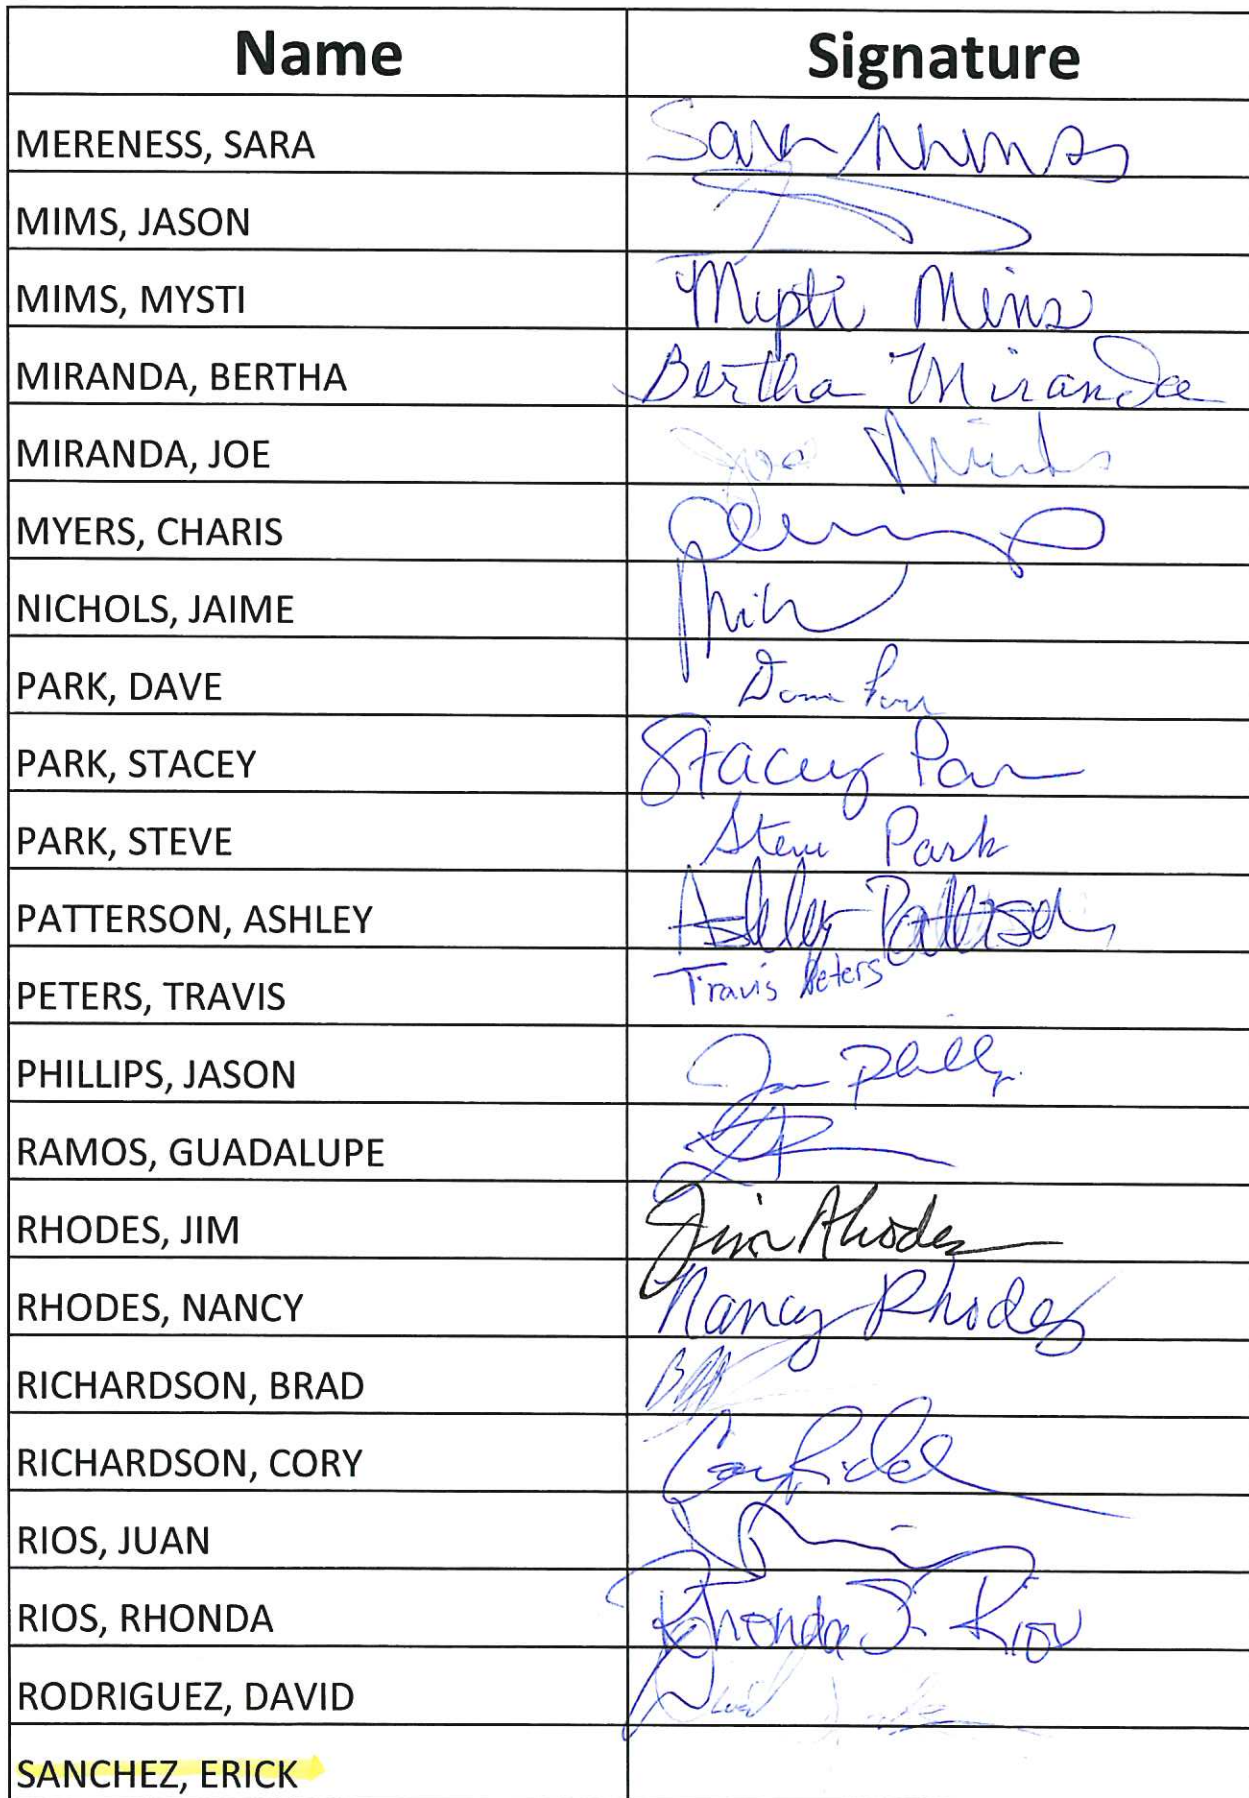 Name Signature
MERENESS, SARA Sara
MIMS, JASON
MIMS, MYSTI Mysti Mims
MIRANDA, BERTHA Bertha Miranda
MIRANDA, JOE Joe
MYERS, CHARIS
NICHOLS, JAIME
PARK, DAVE
PARK, STACEY Stacey
PARK, STEVE Steve Park
PATTERSON, ASHLEY Ashley Patterson
PETERS, TRAVIS Travis Peters
PHILLIPS, JASON
RAMOS, GUADALUPE
RHODES, JIM Jim Rhodes
RHODES, NANCY Nancy Rhodes
RICHARDSON, BRAD
RICHARDSON, CORY
RIOS, JUAN
RIOS, RHONDA Rhonda J. Rios
RODRIGUEZ, DAVID David
SANCHEZ, ERICK